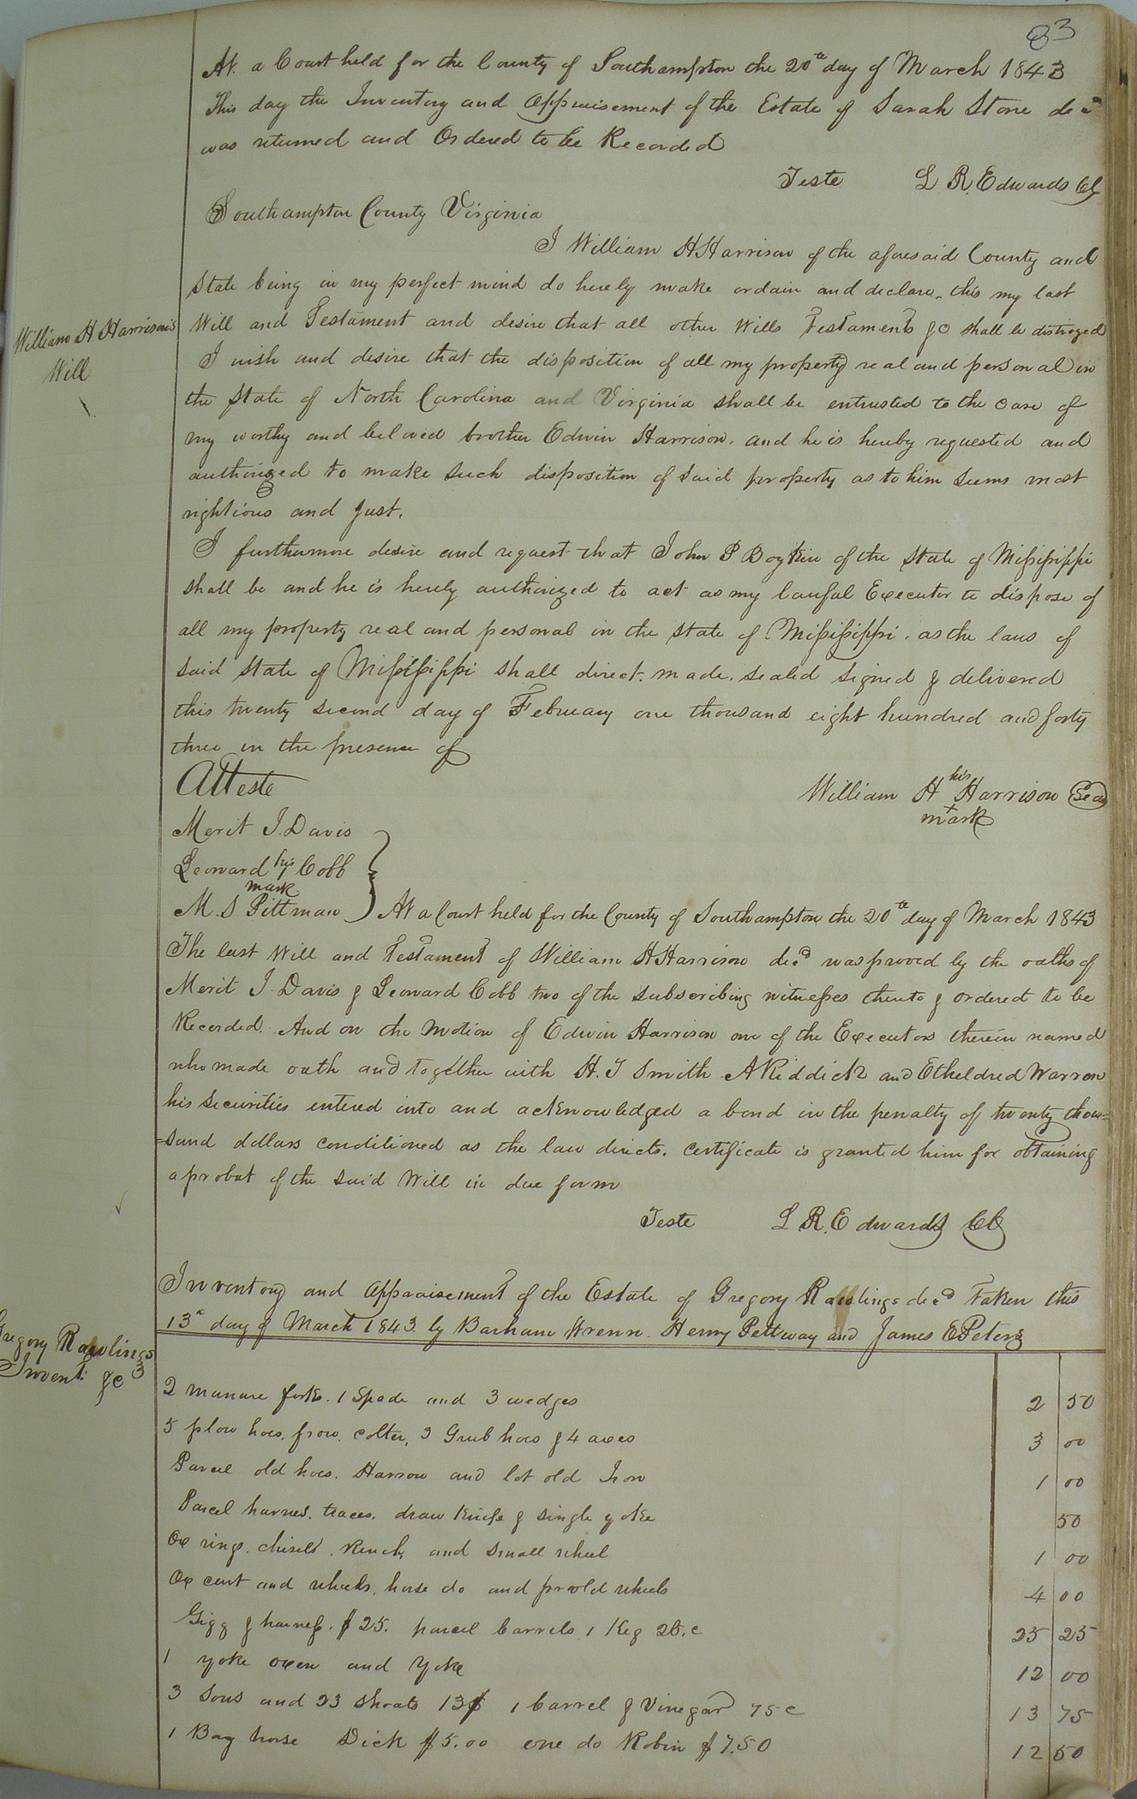 83
At a Court held for the County of Southampton the 20th day of March 1843
This day the Inventory and Appraisement of the Estate of Sarah Stone decd
was returned and Ordered to be Recorded
Teste L R Edwards CC
Southampton County Virginia
I William H Harrison of the aforesaid County and
State being in my perfect mind do hereby make ordain and declare this my last
William H Harrison's
Will
Will and Testament and desire that all other Wills Testaments &c shall be distroyed
I wish and desire that the disposition of all my property real and personal in
the State of North Carolina and Virginia shall be entrusted to the care of
my worthy and beloved brother Edwin Harrison. and he is hereby requested and
authorized to make such disposition of said property as to him seems most
rightious and Just.
I furthermore desire and request that John P Boykin of the State of Mississippi
shall be and he is hereby authorized to act as my lawful Executor to dispose of
all my property real and personal in the state of Mississippi. as the laws of
said state of Mississippi shall direct. made. sealed signed & delivered
this twenty second day of February one thousand eight hundred and forty
three in the presence of
Atteste
William H his Harrison Seal
+
mark
Merit J. Davis
Leonard his Cobb
mark
M. S Pittman } At a Court held for the County of Southampton the 20th day of March 1843
The last Will and Testament of William H Harrison decd was proved by the oaths of
Merit J. Davis & Leonard Cobb two of the subscribing witnesses thereto & ordered to be
Recorded. And on the Motion of Edwin Harrison one of the Executors therein named
who made oath and together with H. T Smith A Riddick and Etheldred Warren
his securities entered into and acknowledged a bond in the penalty of twenty thou=
=sand dollars conditioned as the law directs. Certificate is granted him for obtaining
a probat of the said Will in due form
Teste L. R. Edwards CC
Inventory and Appraisement of the Estate of Gregory Rawlings decd Taken this
13th day of March 1843. by Barham Wrenn. Henry Pettway and James E Peters
Gregory Rawlings
Invent &c
2 manure forks. 1 Spade and 3 wedges 2 50
5 plow hoes. frow. colter, 3 Grub hoes & 4 axes 3 00
Parcel old hoes. Harrow and lot old Iron 1 00
Parcel harnes. traces. draw knife & single yoke 50
Ox rings. chisels. Rench and small wheel 1 00
Ox cart and wheels. horse do and pr old wheels 4 00
Gigg & harness. $25. parcel barrels 1 Keg 25.c 25 25
1 yoke oxen and Yoke 12 00
3 Sows and 23 Shoats 13$ 1 barrel & Vinegar 75c 13 75
1 Bay horse Dick $5.00 one do Robin $7.50 12 50